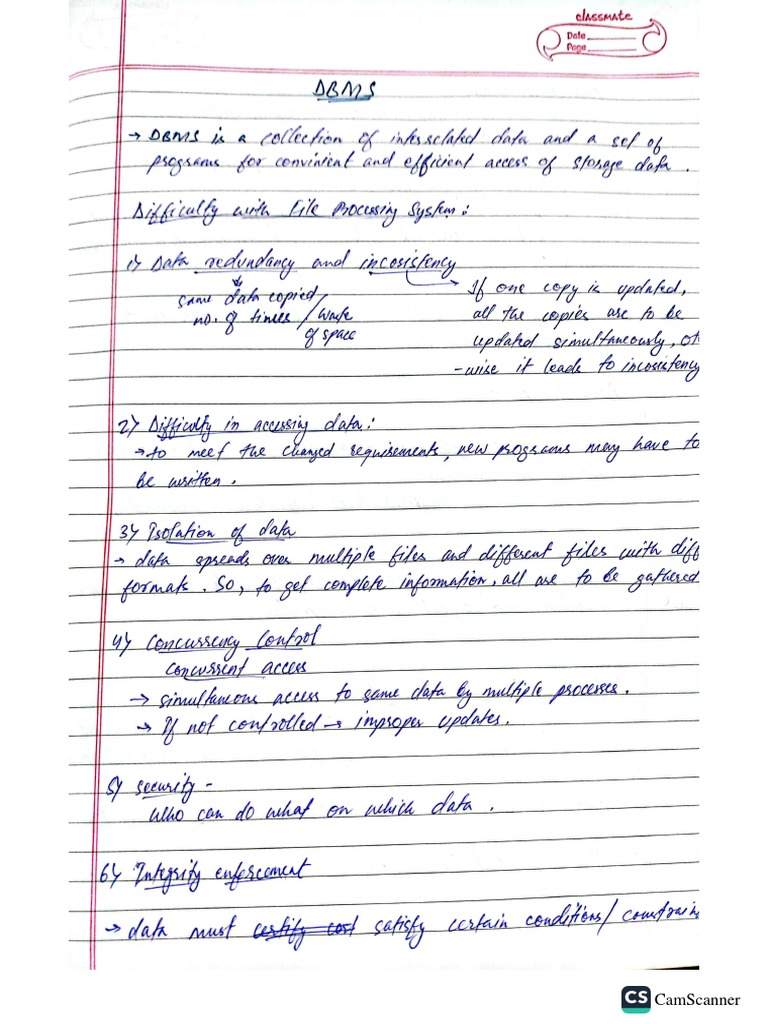 classmate
Date
Page
DBMS
→ DBMS is a collection of interrelated data and a set of
programs for convinient and efficient access of storage data .
Difficulty with File Processing System :
1) Data redundancy and incosistency
same data copied
no. of times / waste
of space
→ If one copy is updated,
all the copies are to be
updated simultaneously, ot
-wise it leads to incosistency
2) Difficulty in accessing data :
→ to meet the changed requirements, new programs may have to
be written .
3) Isolation of data
→ data spreads over multiple files and different files with diff
formats . So, to get complete information, all are to be gathered
4) Concurrency Control
concurrent access
→ simultaneous access to same data by multiple processes .
→ If not controlled → improper updates .
5) Security -
Who can do what on which data .
6) Integrity enforcement
→ data must satisfy certain conditions / constrain
CS CamScanner